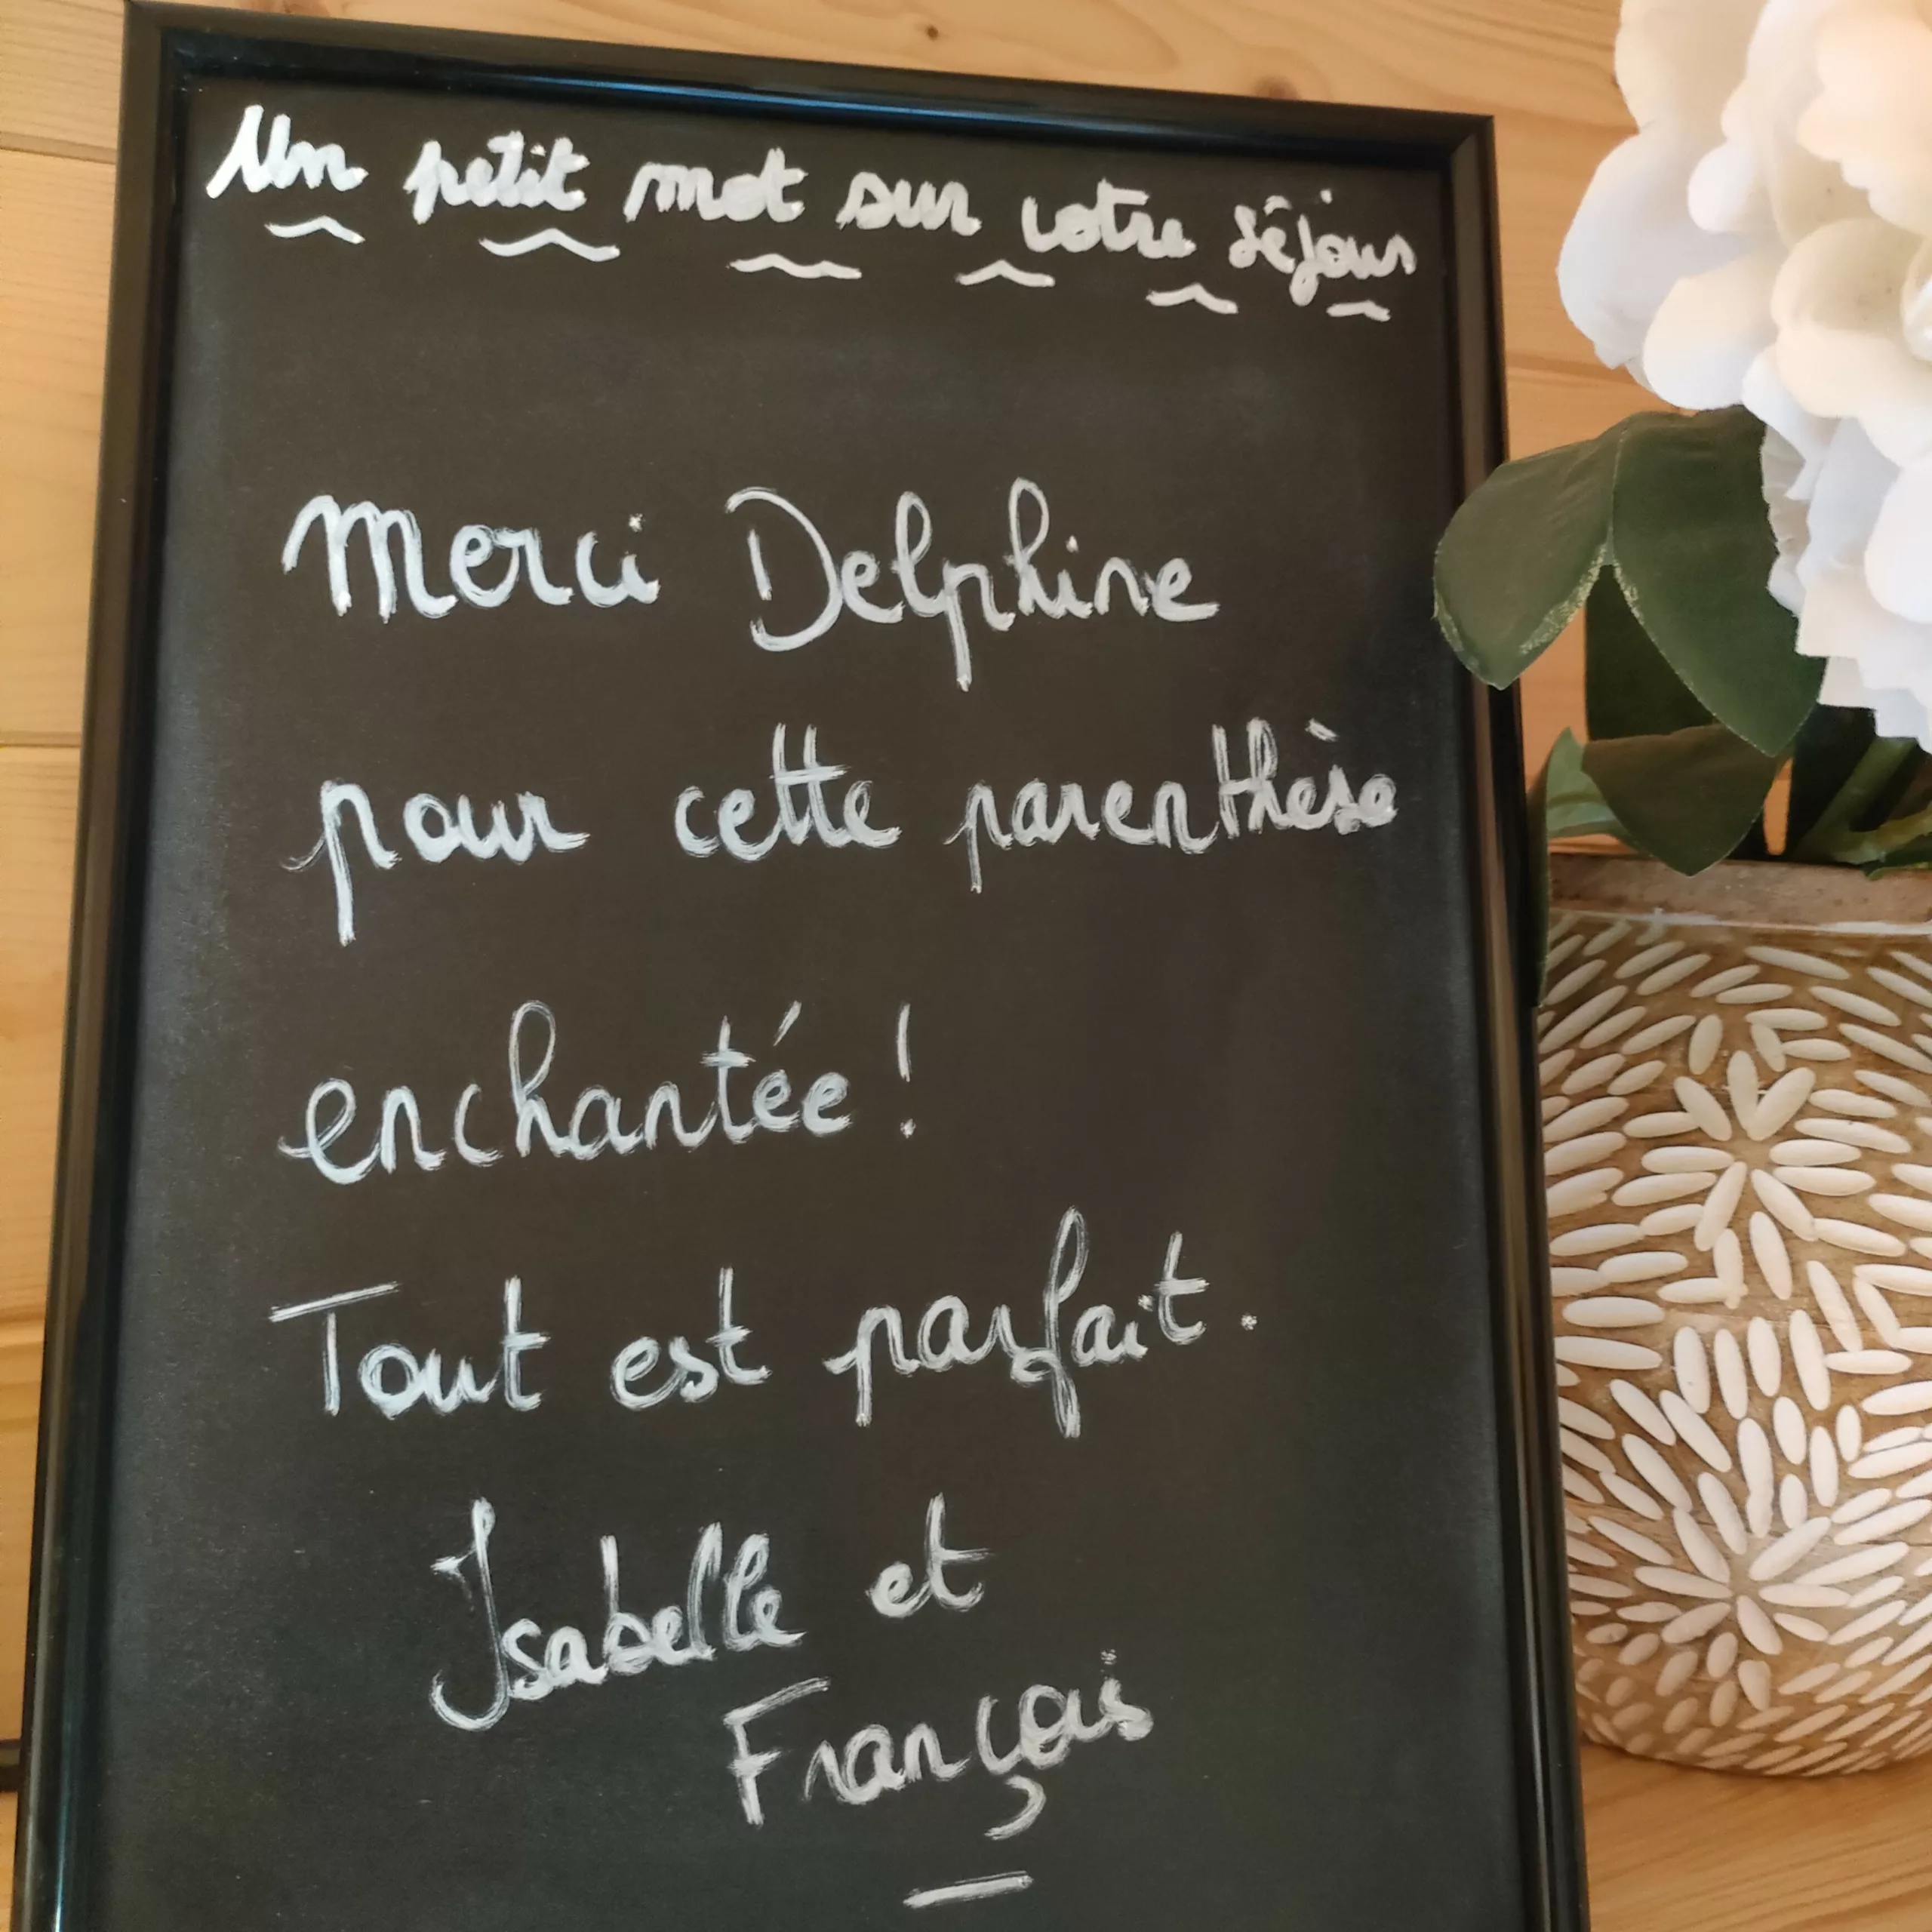 Un petit mot sur votre séjour
Merci Delphine
pour cette parenthèse
enchantée !
Tout est parfait.
Isabelle et
François